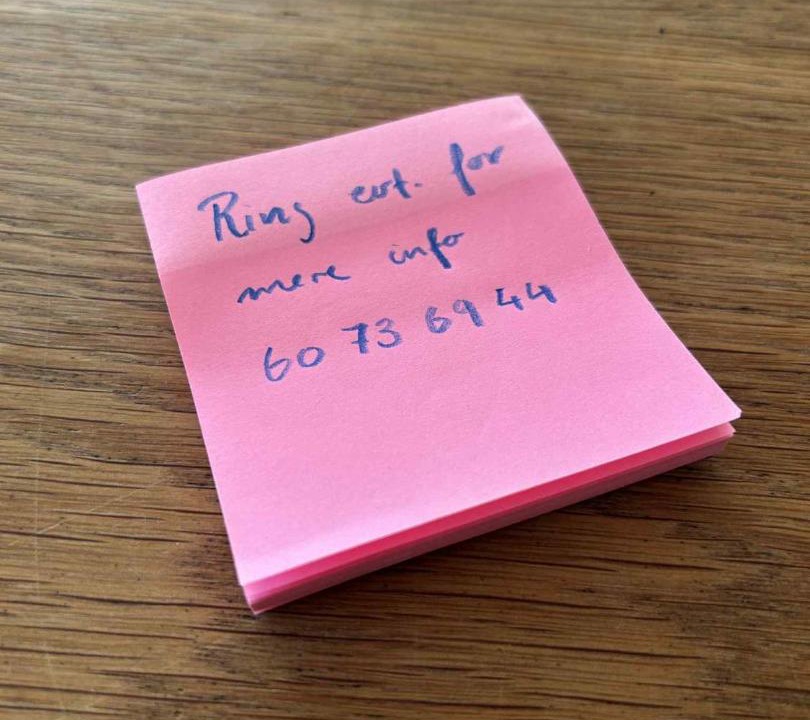 Ring evt. for
mere info
60 73 69 44